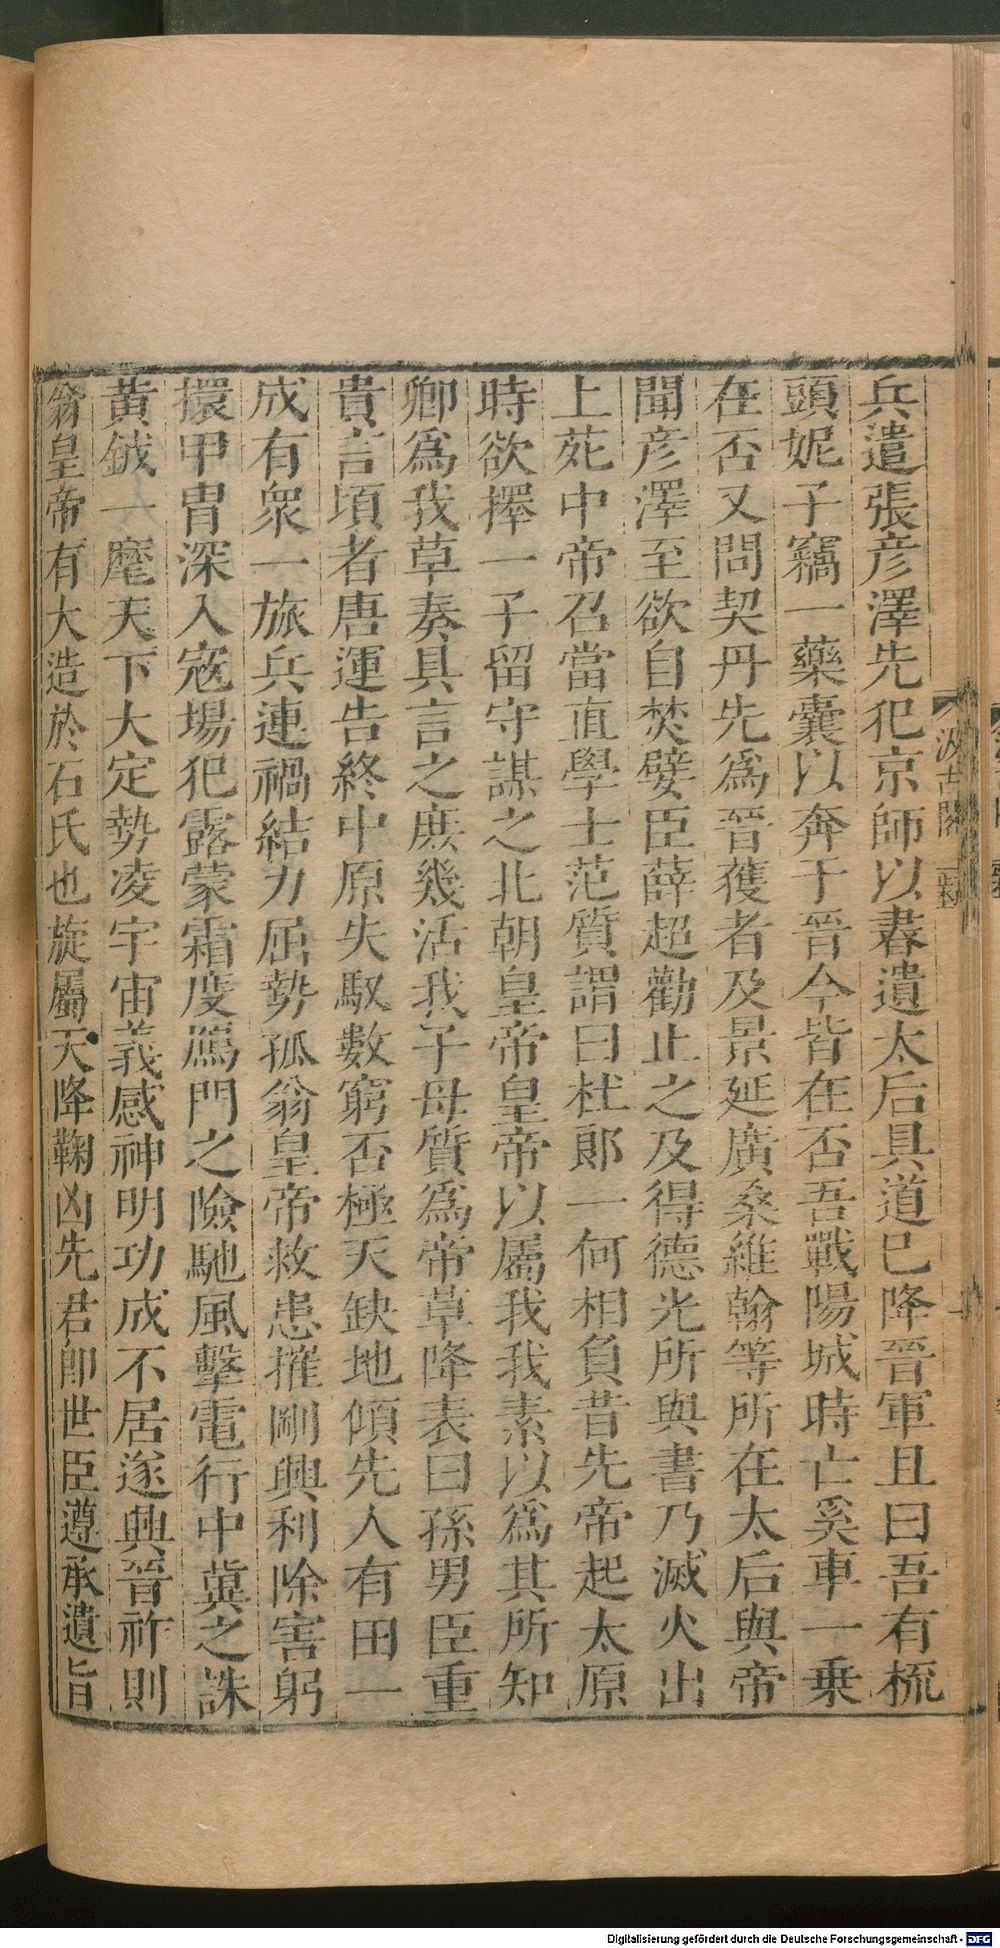 兵遣張彥澤先犯京師以書遺太后具道已降晉軍且曰吾有梳
頭妮子竊一藥囊以奔于晉今皆在否吾戰陽城時亡奚車一乗
在否又問契丹先爲晉獲者及景延廣桑維翰等所在太后與帝
聞彥澤至欲自焚嬖臣薛超勸止之及得德光所與書乃滅火出
上苑中帝召當直學士范質謂曰杜郎一何相負昔先帝起太原
時欲擇一子留守謀之北朝皇帝皇帝以屬我我素以爲其所知
卿爲我草奏具言之庶幾活我子母質爲帝草降表曰孫男臣重
貴言頃者唐運告終中原失馭數窮否極天缺地傾先人有田一
成有衆一旅兵連禍結力屈勢孤翁皇帝救患摧剛興利除害躬
擐甲冑深入寇場犯露蒙霜度鴈門之險馳風擊電行中冀之誅
黃鉞一麾天下大定勢凌宇宙義感神明功成不居遂興晉祚則
翁皇帝有大造於石氏也旋屬天降鞠凶先君卽世臣遵承遺旨
汲古閣
Digitalisierung gefördert durch die Deutsche Forschungsgemeinschaft - DFG